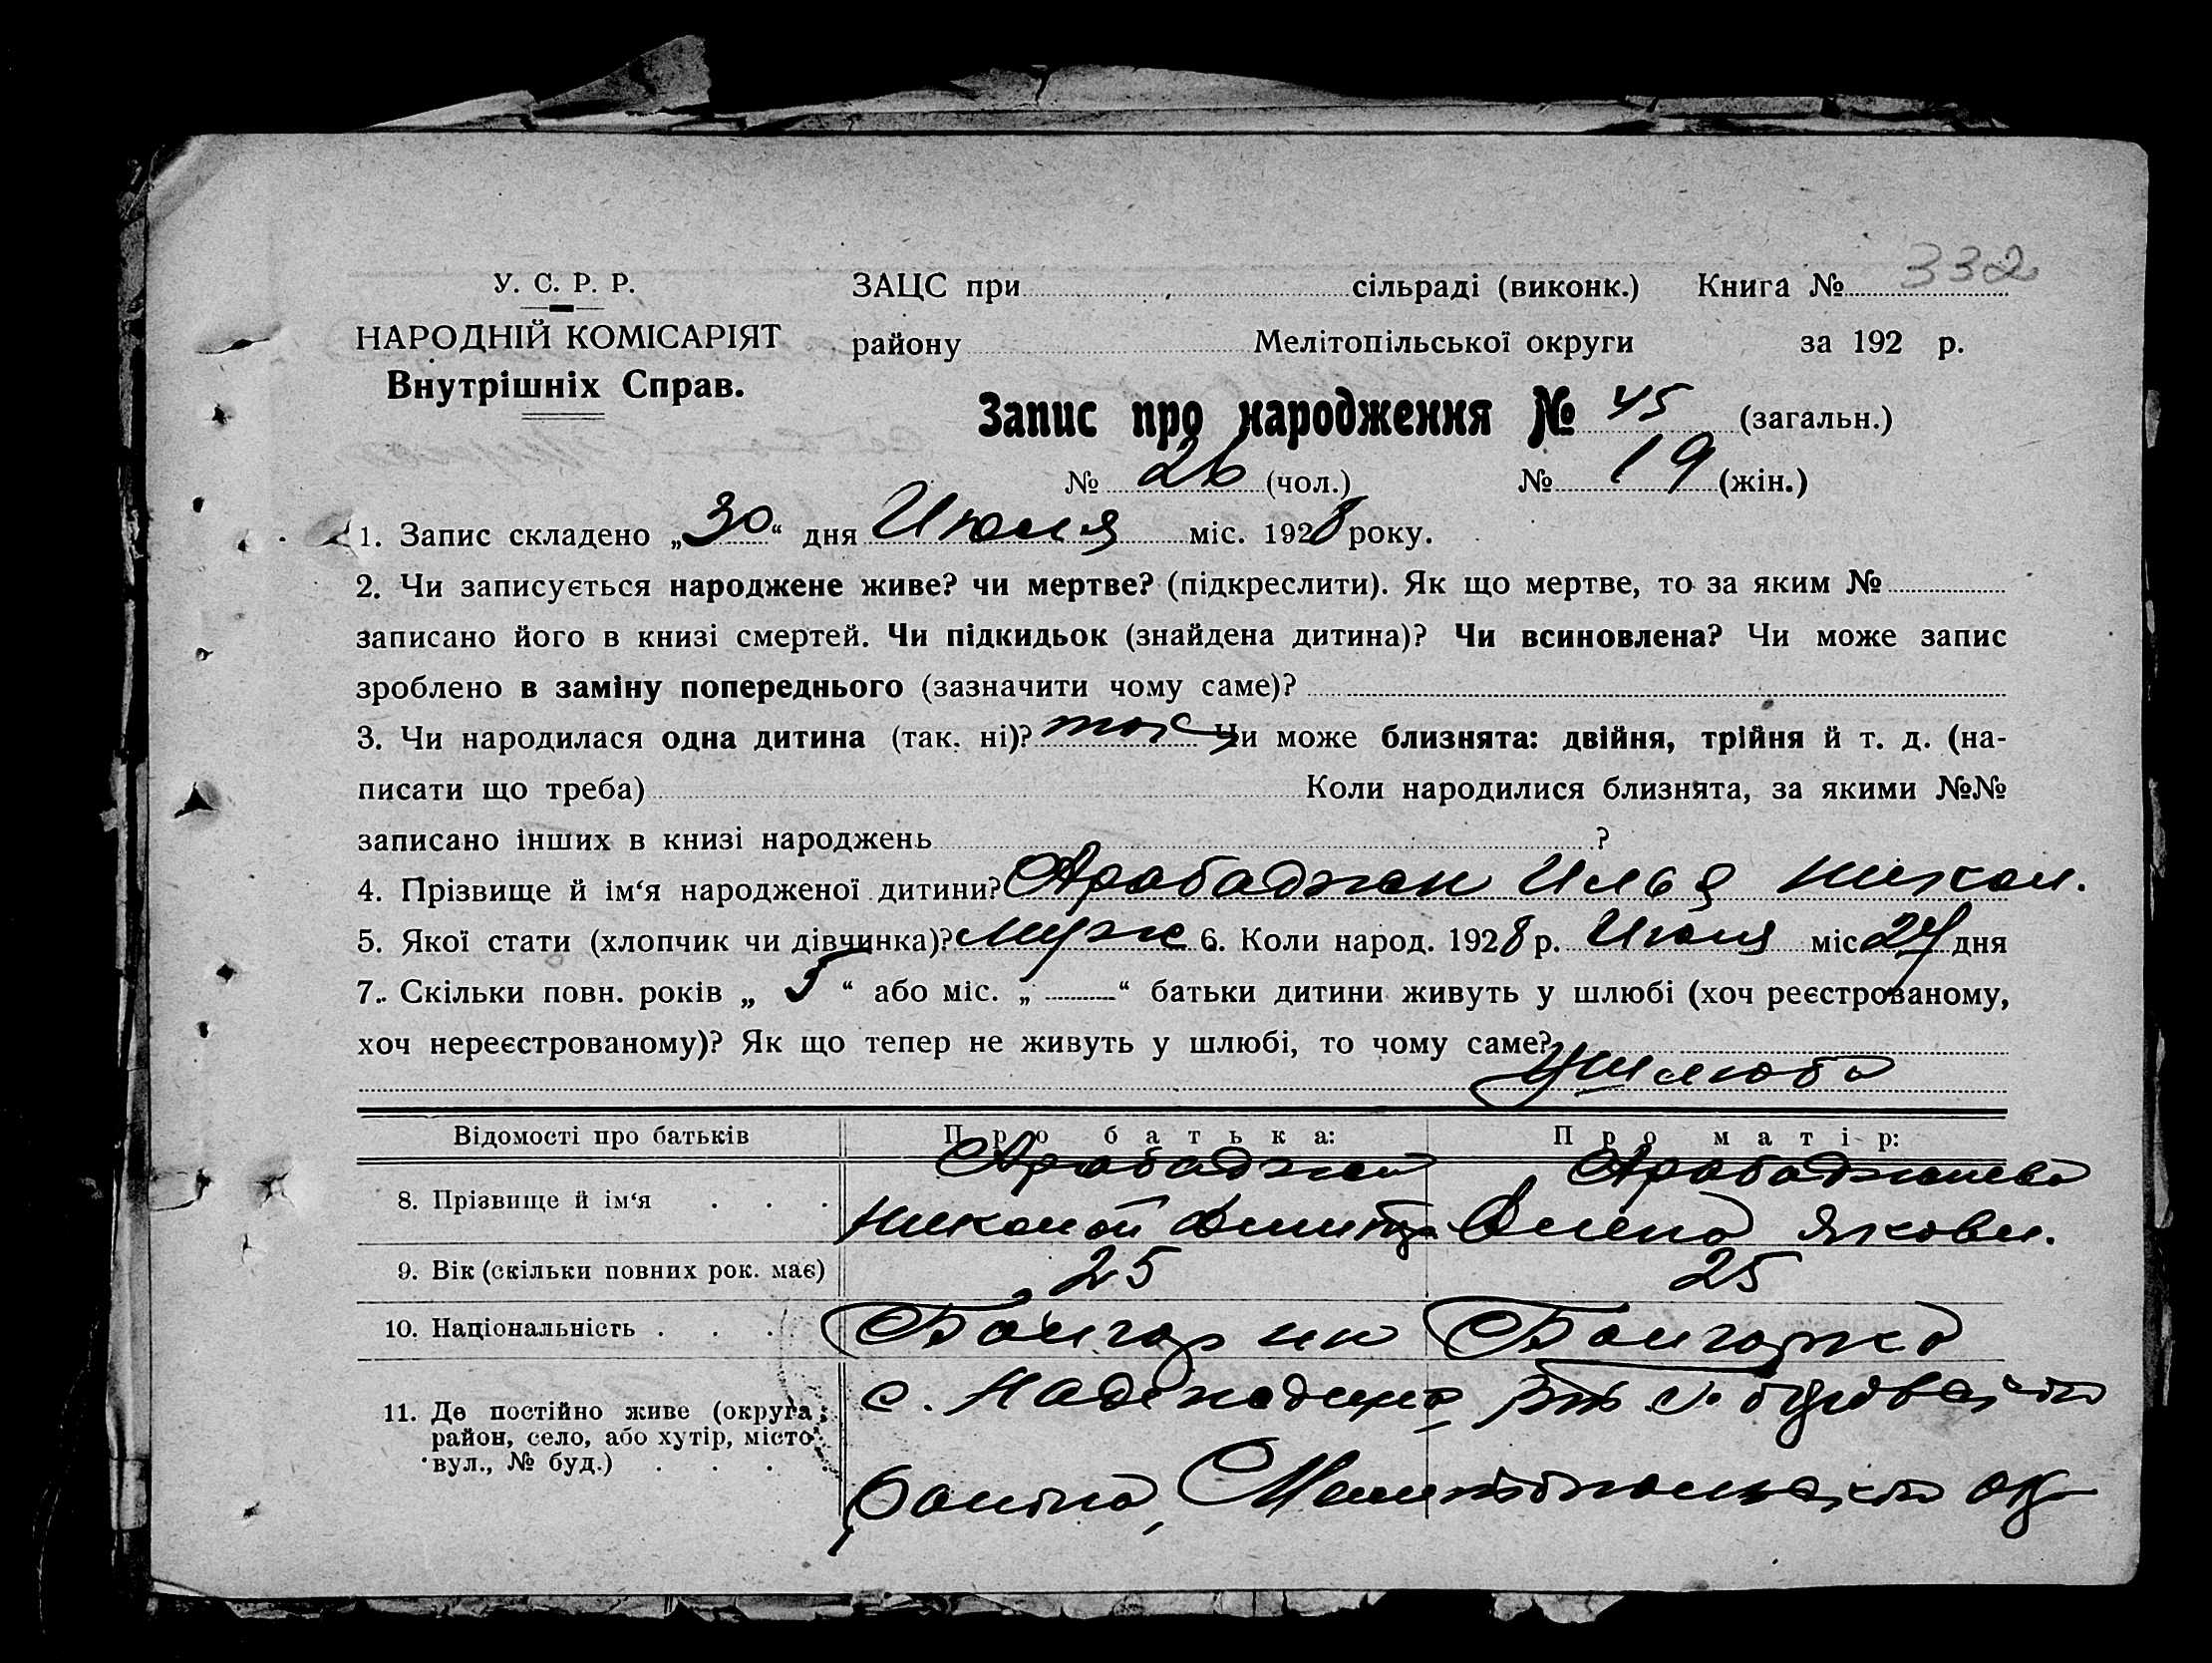 332
У. С. Р. Р.
НАРОДНІЙ КОМІСАРІЯТ
Внутрішніх Справ.
ЗАЦС при сільраді (виконк.) Книга №
району Мелітопільської округи за 192 р.
Запис про народження № 45 (загальн.)
№ 26 (чол.) № 19 (жін.)
1. Запис складено „30“ дня Июля міс. 1928 року.
2. Чи записується народжене живе? чи мертве? (підкреслити). Як що мертве, то за яким №
записано його в книзі смертей. Чи підкидьок (знайдена дитина)? Чи всиновлена? Чи може запис
зроблено в заміну попереднього (зазначити чому саме)?
3. Чи народилася одна дитина (так, ні)? так Чи може близнята: двійня, трійня й т. д. (на-
писати що треба) Коли народилися близнята, за якими №№
записано інших в книзі народжень ?
4. Прізвище й ім‘я народженої дитини? Арабаджи Илья Никол.
5. Якої стати (хлопчик чи дівчинка)? муж 6. Коли народ. 1928 р. Июля міс 24 дня
7. Скільки повн. років „ 5 “ або міс. „ “ батьки дитини живуть у шлюбі (хоч реєстрованому,
хоч нереєстрованому)? Як що тепер не живуть у шлюбі, то чому саме?
у шлюбі
Відомості про батьків Про батька: Про матір:
8. Прізвище й ім‘я . . . Арабаджи Арабаджиева
Николай Дмитр Олена Яковл.
9. Вік (скільки повних рок. має) 25 25
10. Національність . . . Болгарин Болгарка
11. Де постійно живе (округа, район, село, або хутір, місто, вул., № буд.) . . . с.
Мелитопольской ок